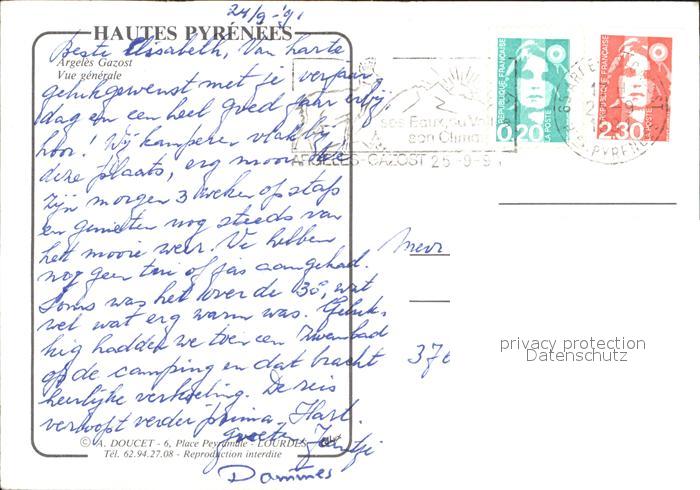 24/9-'91
HAUTES PYRÉNÉES
Argelès Gazost
Vue générale
Beste Elisabeth, Van harte
gelukgewenst met je verjaar
dag en een heel goed jaar erbij
hoor! Wij kamperen vlak bij
deze plaats, erg mooi
zijn morgen 3 weken op stap
en genieten nog steeds van
het mooie weer. We hebben
nog geen trui of jas aangehad.
Soms was het over de 30°, wat
wel wat erg warm was. Geluk-
kig hadden we toen een zwembad
op de camping en dat bracht
heerlijke verkoeling. De reis
verloopt verder prima. Hart.
groeten
Dammes
© A. DOUCET - 6, Place Peyramale - LOURDES
Tél. 62.94.27.08 - Reproduction interdite
ses Eaux, sa Vall
son Clima
ARGELES-GAZOST 25-9-9
REPUBLIQUE FRANÇAISE
0,20
LA POSTE
REPUBLIQUE FRANÇAISE
2,30
LA POSTE
PYRENEES
Mevr
376
privacy protection
Datenschutz